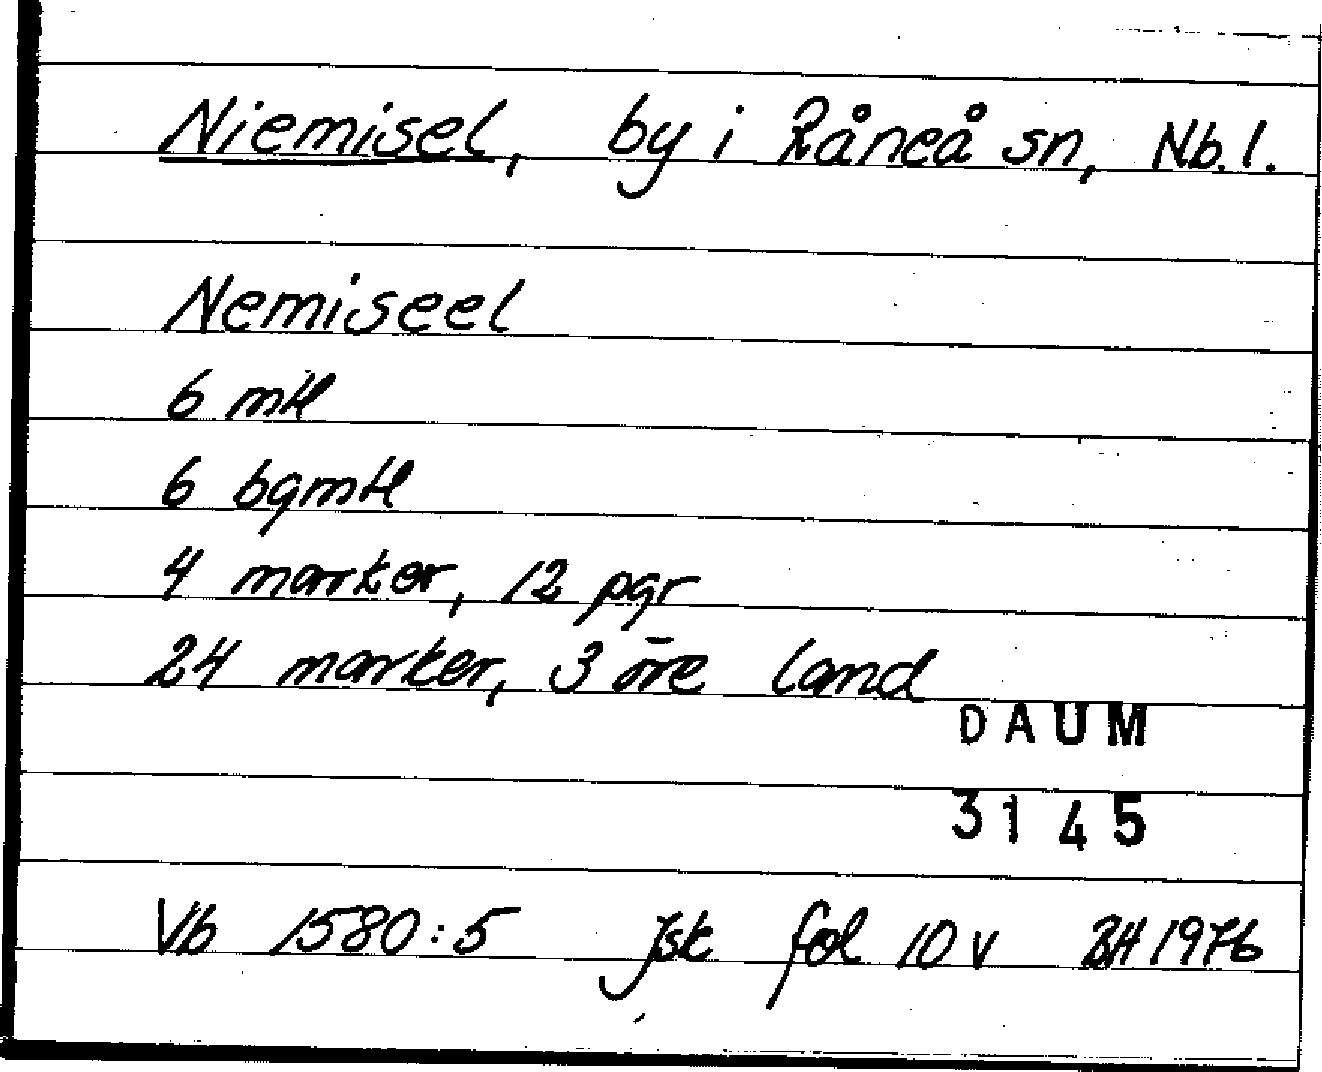 Niemisel, by i Råneå sn, Nb. l.
Nemiseel
6 mtl
6 bgmtl
4 marker, 12 pgr
24 marker, 3 öre land
DAUM
3145
Vb 1580:5 Jsk fol 10 v BH 1976